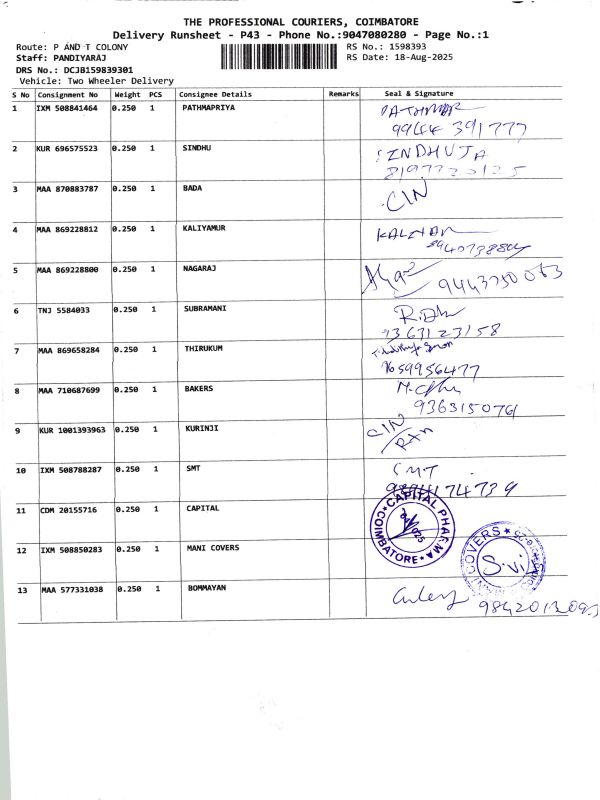 THE PROFESSIONAL COURIERS, COIMBATORE
Delivery Runsheet - P43 - Phone No.:9047080280 - Page No.:1
Route: P AND T COLONY RS No.: 1598393
Staff: PANDIYARAJ RS Date: 18-Aug-2025
DRS No.: DCJB159839301
Vehicle: Two Wheeler Delivery
S No Consignment No Weight PCS Consignee Details Remarks Seal & Signature
1 IXM 508841464 0.250 1 PATHMAPRIYA
99444 391777
2 KUR 696575523 0.250 1 SINDHU SINDHUJA
8197720125
3 MAA 870883787 0.250 1 BADA CIN
4 MAA 869228812 0.250 1 KALIYAMUR
5 MAA 869228800 0.250 1 NAGARAJ
9443750083
6 TNJ 5584033 0.250 1 SUBRAMANI
9363123158
7 MAA 869658284 0.250 1 THIRUKUM
7659956477
8 MAA 710687699 0.250 1 BAKERS
9363150761
9 KUR 1001393963 0.250 1 KURINJI CIN
10 IXM 508788287 0.250 1 SMT SMT
11 CDM 20155716 0.250 1 CAPITAL CAPITAL PHARMA COIMBATORE
12 IXM 508850283 0.250 1 MANI COVERS COVERS
13 MAA 577331038 0.250 1 BOMMAYAN